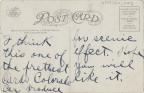 POST CARD
I think
this one of
the prettest
Colorado
can produce
for scenic
effect. Hope
you will
like it.